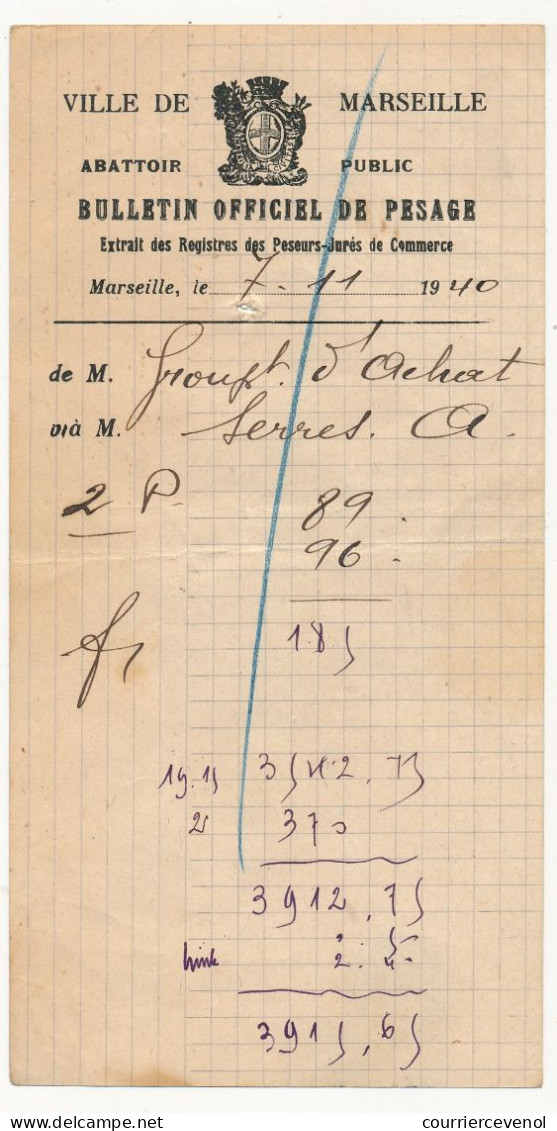 VILLE DE MARSEILLE
ABATTOIR PUBLIC
BULLETIN OFFICIEL DE PESAGE
Extrait des Registres des Peseurs-Jurés de Commerce
Marseille, le 7 - 11 1940
de M. Groupt. d'Achat
à M. Serres. A.
2 P. 89
96
185
19.15 3542,75
2 370
3912,75
2.
3915,65
courriercevenol.com